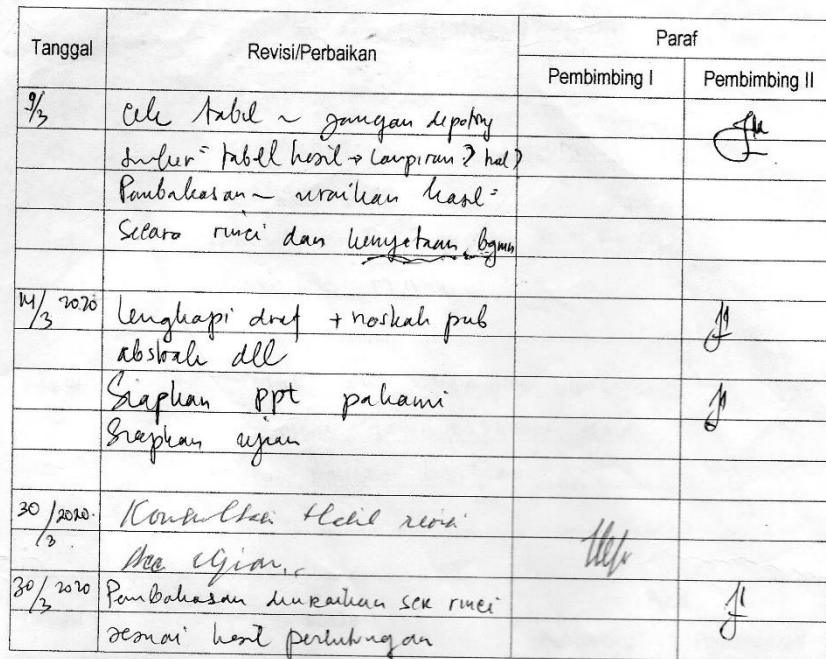 Tanggal Revisi/Perbaikan Paraf
Pembimbing I Pembimbing II
9/3 Cek tabel ~ jangan dipotong
Sumber = tabel hasil → lampiran? hal?
Pembahasan ~ uraikan hasil =
Secara rinci dan kenyataan bgmn
14/3 2020 Lengkapi draf + naskah pub
abstrak dll
Siapkan ppt pahami
Siapkan ujian
30/3 2020. Konsultasi Hasil revisi
Acc ujian
30/3 2020 Pembahasan diuraikan sec rinci
sesuai hasil perhitungan